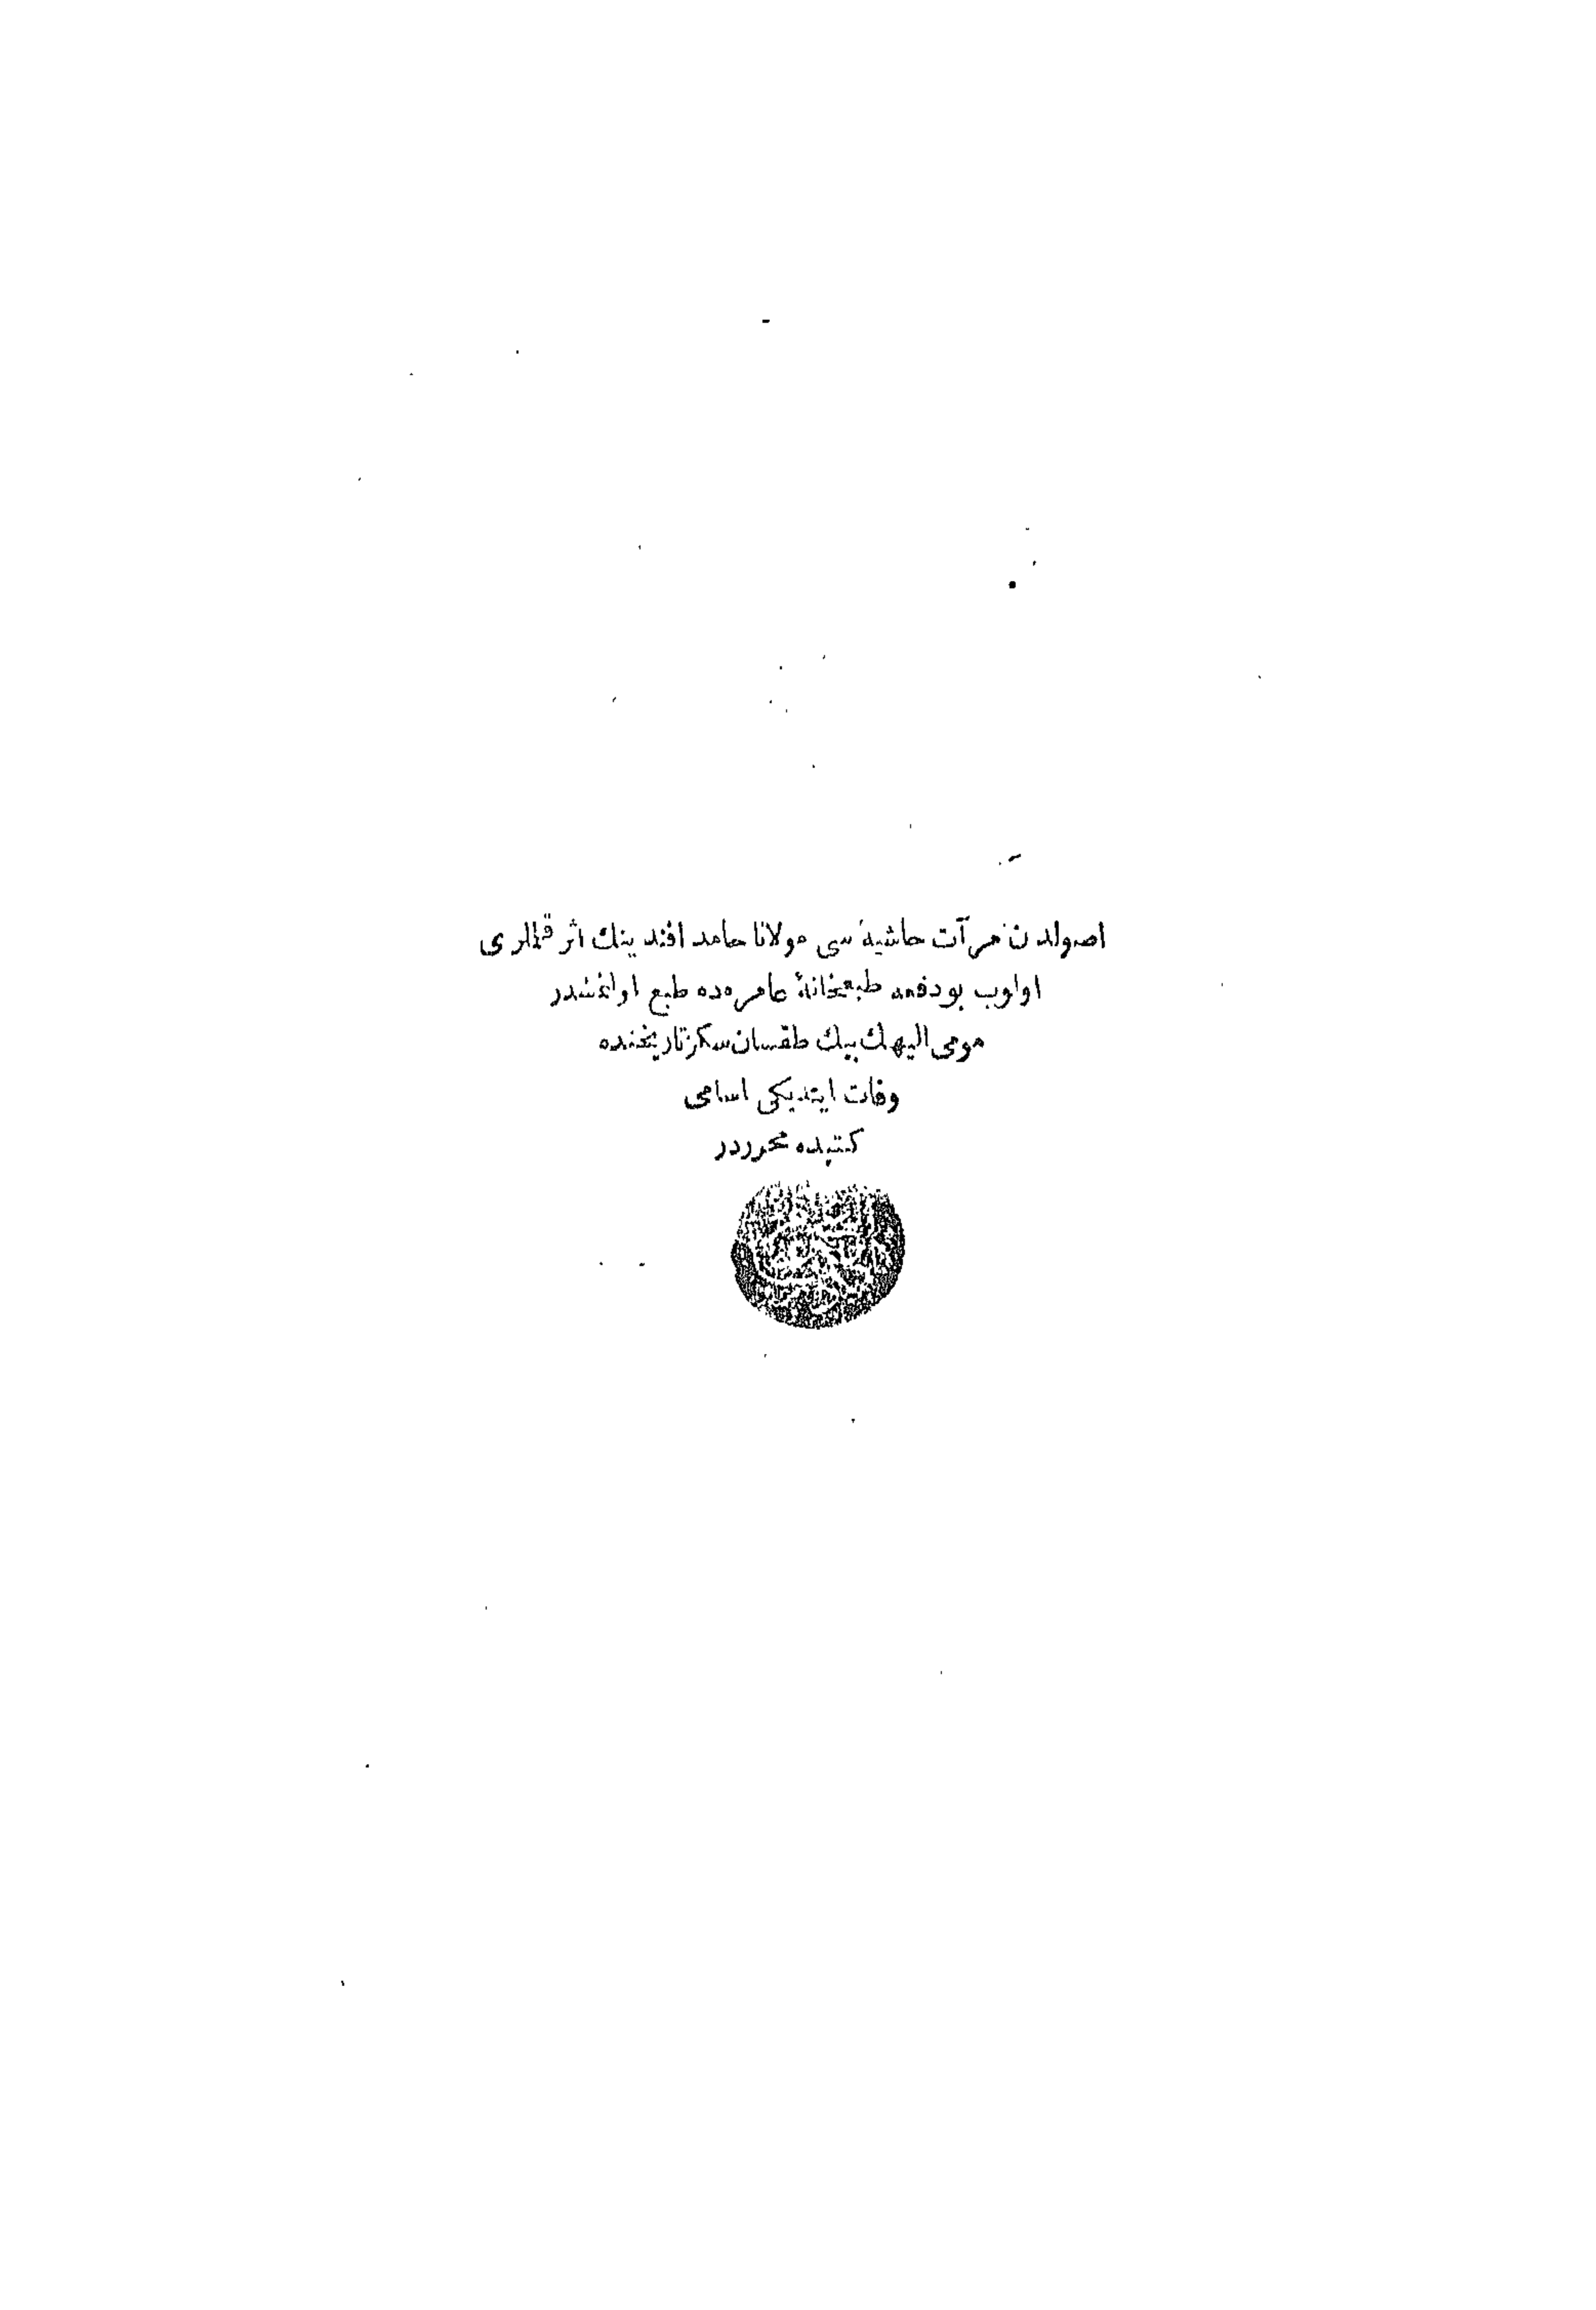 اصولدن مرآت حاشیه‌سی مولانا حامد افندینك اثر قلملری
اولوب بودفعه طبعخانهٔ عامره‌ده طبع اولنمشدر
مومی الیهك بیك طقسان سکز تاریخنده
وفات ایتدیکی اسامی
کتبده محرردر